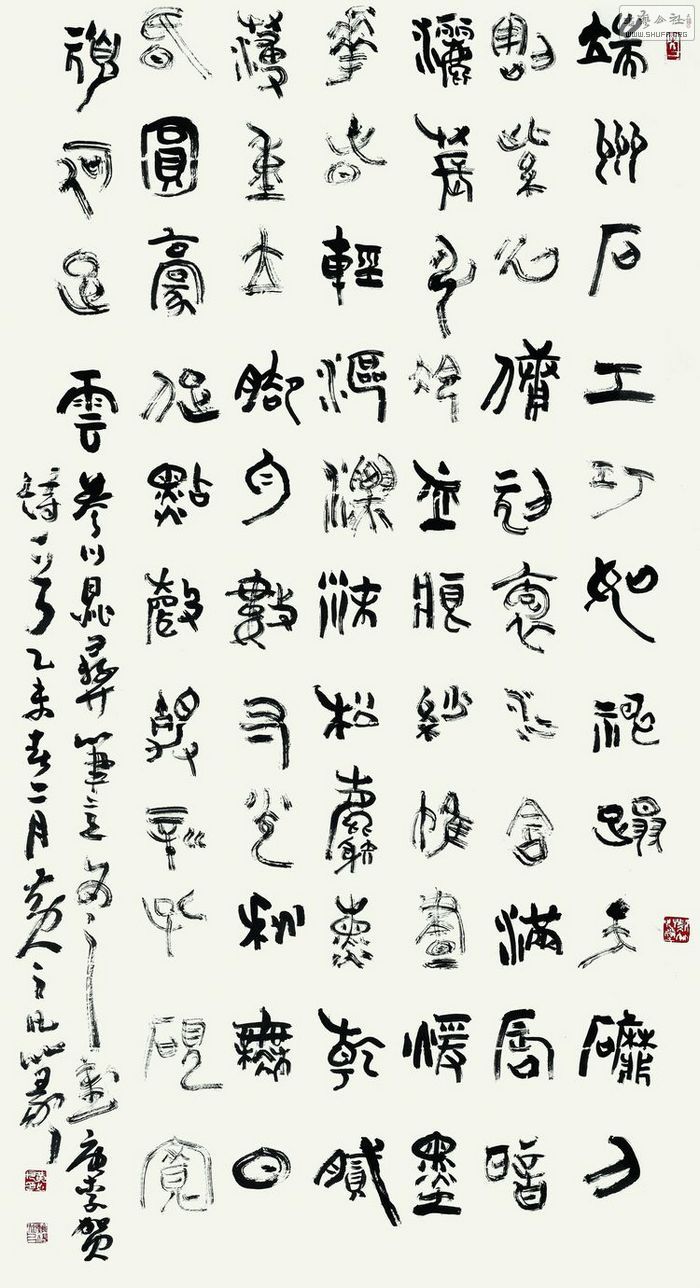 端州石工巧如神踏天磨刀
割紫云傭刓抱水含滿脣暗
灑萇弘冷血痕紗帷晝暖墨
花春輕漚漂沫松麝薰乾膩
薄重立腳勻數寸光秋無日
昏圓毫促點聲靜新孔硯寬
頑何足雲
彝筆意 唐李賀
詩一首乙未春二月
WWW.SHUFA.ORG